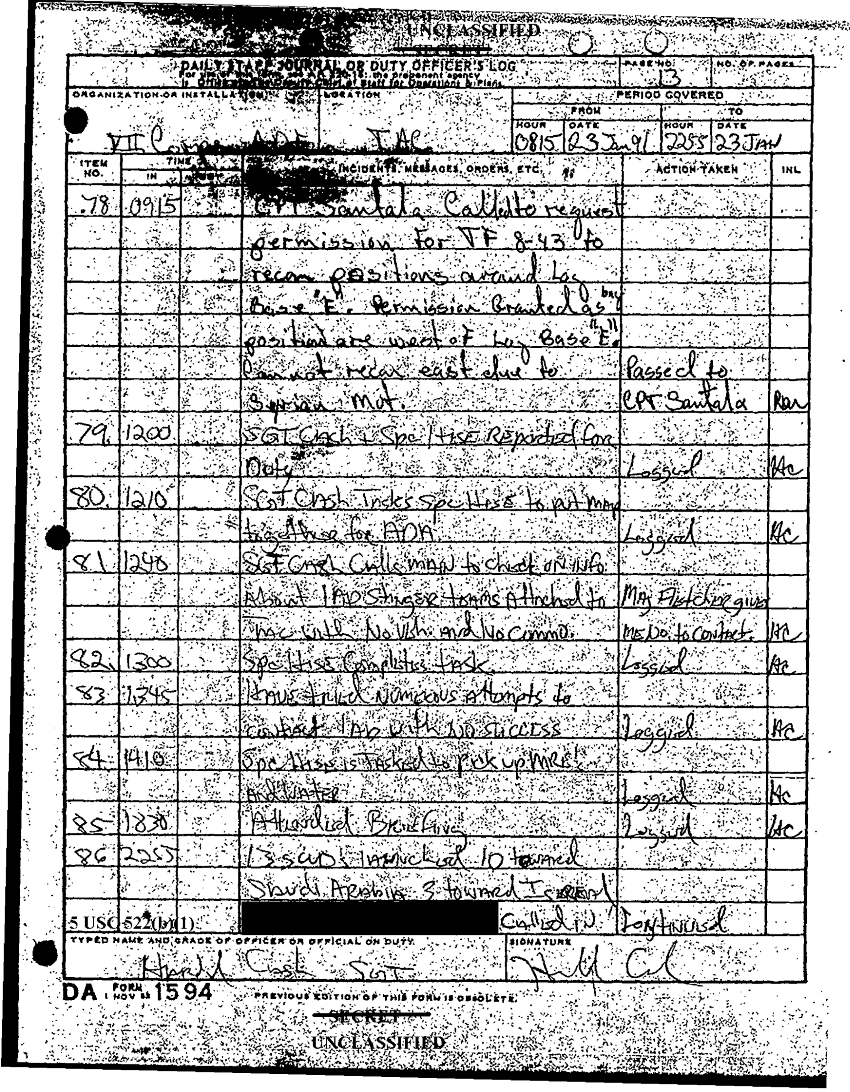 UNCLASSIFIED
SECRET
DAILY STAFF JOURNAL OR DUTY OFFICER'S LOG
PAGE NO. 13
NO. OF PAGES
ORGANIZATION OR INSTALLATION
LOCATION
PERIOD COVERED
FROM TO
HOUR DATE HOUR DATE
VII Corps ADE TAC 0815 23 Jan 91 2255 23 JAN
ITEM NO. TIME IN INCIDENTS, MESSAGES, ORDERS, ETC. ACTION TAKEN INL
78 0915 CPT Santala Called to request
permission for TF 8-43 to
recon positions around Log
Base "E". Permission Granted as btry
position are west of Log Base "E".
Cannot recon east due to Passed to
Syrian Mvt. CPT Santala
79. 1200 SGT Cash + Spc Hise Reported for
Duty Logged HC
80. 1210 SGT Cash Tasks Spc Hise to put map
together for ADA Logged HC
81 1240 SGT Cash Calls MAIN to check on info
About 1AD Stinger teams Attached to MAJ Fletcher gives
TAC with No Veh. And No Commo. me No. to contact. HC
82. 1300 Spc Hise Completes task Logged HC
83 1345 Have tried Numerous Attempts to
contact 1AD with No Success Logged HC
84 1410 Spc Hise is Tasked to pick up MRE's
And Water Logged HC
85 1830 Attended Briefing Logged HC
86 2255 13 SCUDs launched 10 toward
Saudi Arabia 3 toward Isreal
5 USC 522(b)(1) Called in Continued
TYPED NAME AND GRADE OF OFFICER OR OFFICIAL ON DUTY SIGNATURE
Harold Cash SGT
DA FORM 1 NOV 1594 PREVIOUS EDITION OF THIS FORM IS OBSOLETE.
SECRET
UNCLASSIFIED